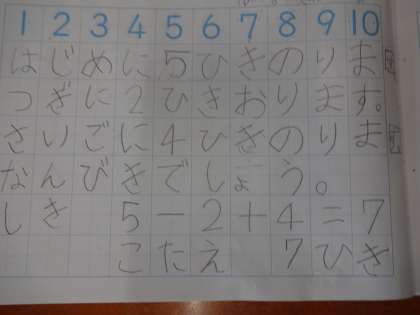 1 2 3 4 5 6 7 8 9 10
はじめに5ひきのりま
つぎに2ひきおります。
さいごに4ひきのりま
なんびきでしょう。
しき 5-2+4=7
こたえ 7ひき